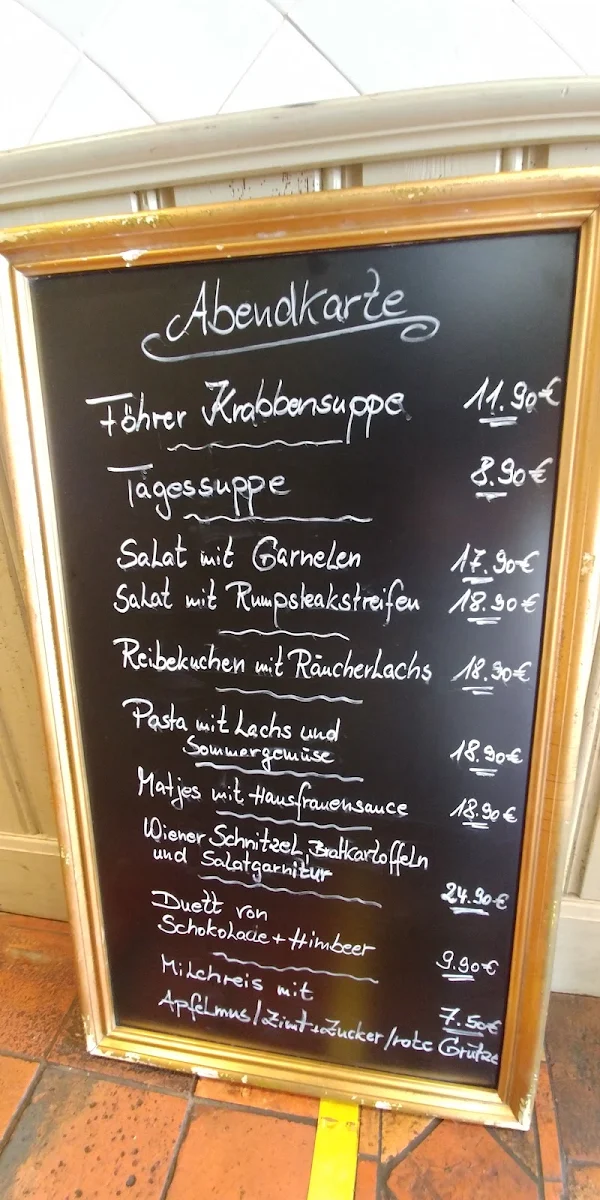 Abendkarte
Föhrer Krabbensuppe 11.90€
Tagessuppe 8.90€
Salat mit Garnelen 17.90€
Salat mit Rumpsteakstreifen 18.90€
Reibekuchen mit Räucherlachs 18.90€
Pasta mit Lachs und
Sommergemüse 18.90€
Matjes mit Hausfrauensauce 18.90€
Wiener Schnitzel, Bratkartoffeln
und Salatgarnitur 24.90€
Duett von
Schokolade + Himbeer 9.90€
Milchreis mit 7.50€
Apfelmus/Zimt+Zucker/rote Grütze